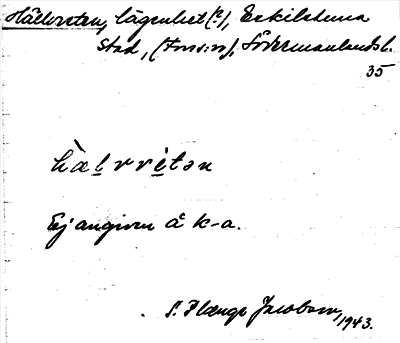 Hälvreten, lägenhet (?), Eskilstuna
stad, (Fors:n), Södermanlands l.
35
hàlvvrètən
Ej angiven å k-a.
S. Plænge Jacobson, 1943.